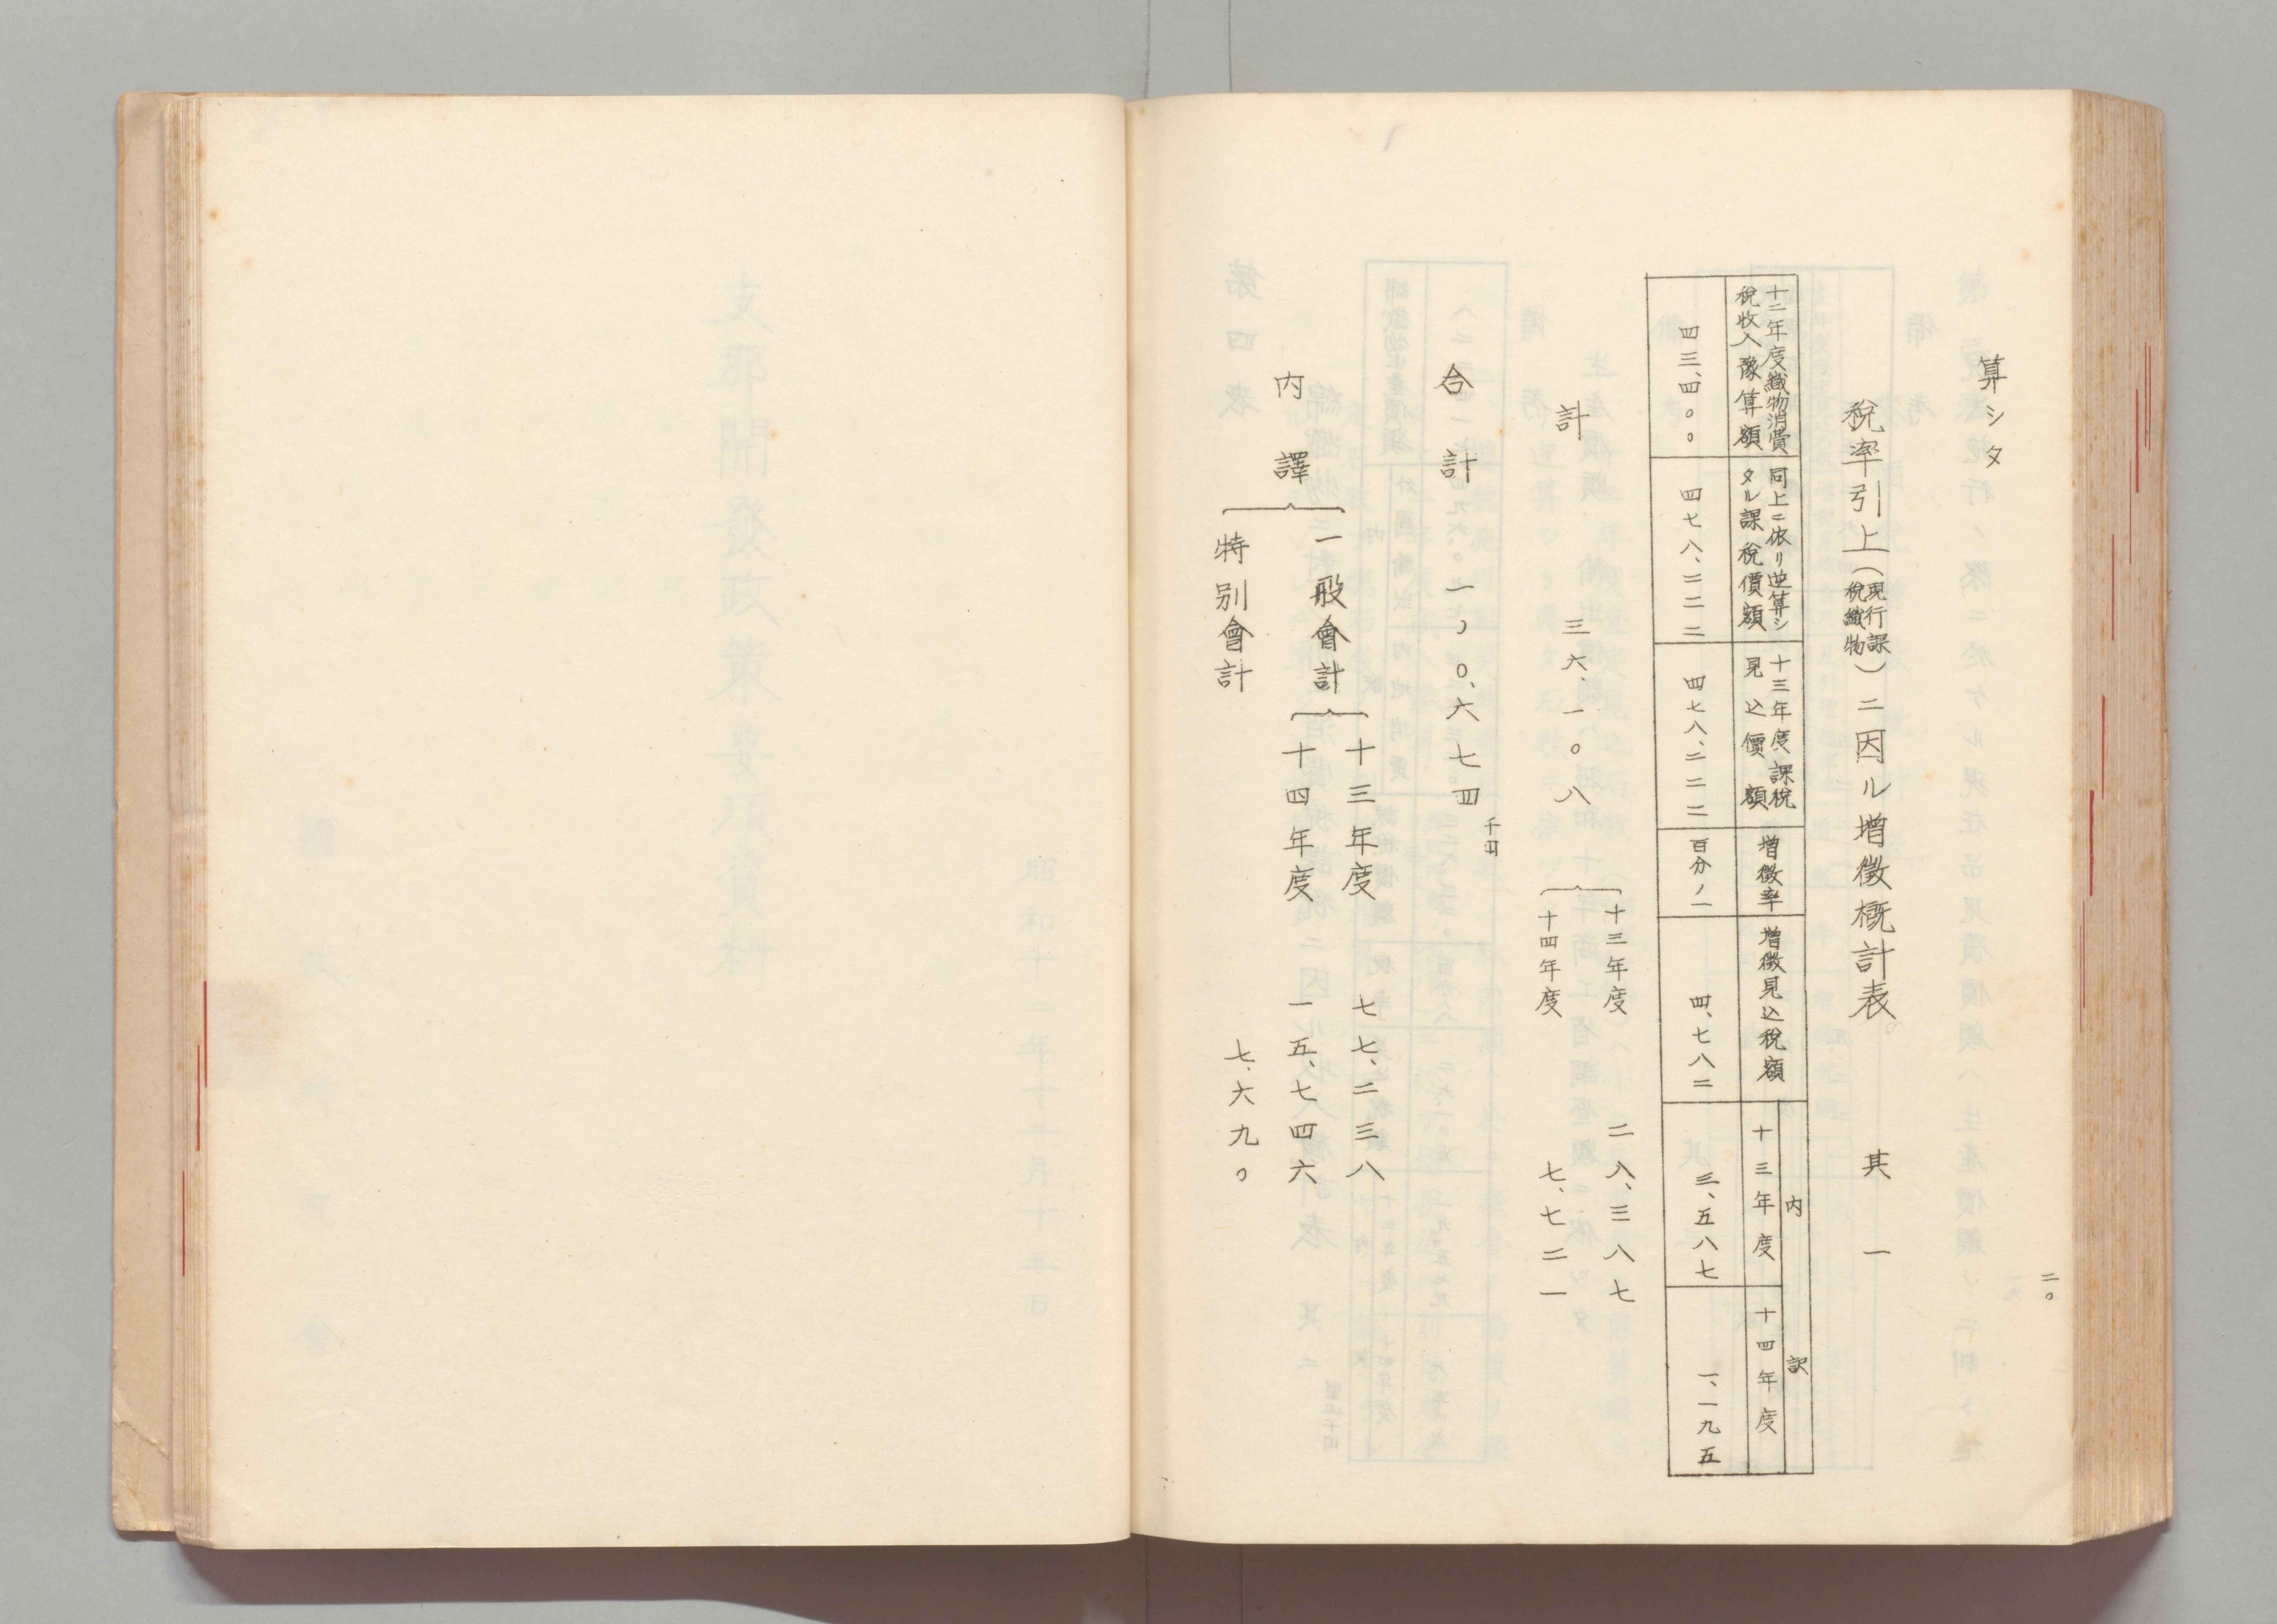 二〇
算シタ
税率引上(現行課税織物)ニ因ル増徴概計表 其一
十二年度織物消費税收入豫算額
同上ニ依リ逆算シタル課税價額
十三年度課税見込價額
増徴率
増徴見込税額
内訳
十三年度
十四年度
四三、四〇〇
四七八、二二二
四七八、二二二
百分ノ一
四、七八二
三、五八七
一、一九五
計 三六、一〇八
十三年度 二八、三八七
十四年度 七、七二一
合計 一〇〇、六七四千円
内譯
一般會計
十三年度 七七、二三八
十四年度 一五、七四六
特別會計 七、六九〇